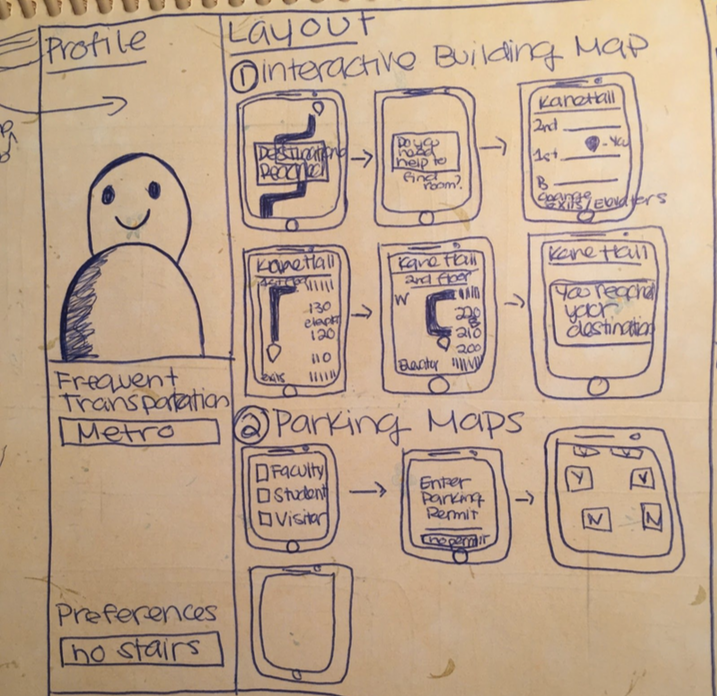 Profile
Frequent
Transportation
Metro
Preferences
no stairs
Layout
① Interactive Building Map
Destination
Reached
Do you
need
help to
find
room?
Kane Hall
2nd
- You
1st
B
change
exits/Elevators
Kane Hall
130
120
110
exits
Kane Hall
2nd floor
W
220
210
200
Elevator
Kane Hall
You reached
your
destination
② Parking Maps
Faculty
Student
Visitor
Enter
Parking
Permit
no permit
Y
Y
Y
Y
N
N